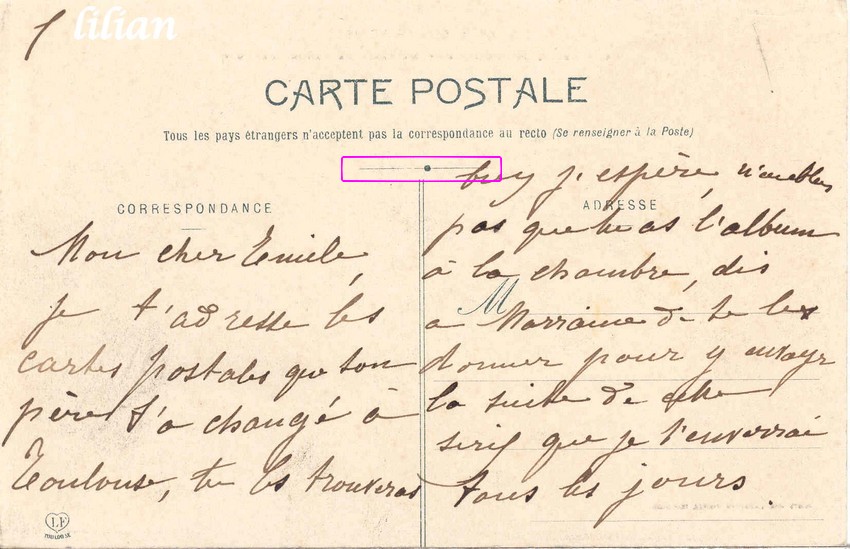 lilian
CARTE POSTALE
Tous les pays étrangers n'acceptent pas la correspondance au recto (Se renseigner à la Poste)
CORRESPONDANCE
Mon cher Emile,
je t'adresse les
cartes postales que ton
père t'a changé à
Toulouse, tu les trouveras
ADRESSE
j'espère, n'oublies
pas que tu as l'album
à la chambre, dis
M
a Marraine de te les
donner pour y envoyer
la suite de cette
serie que je t'enverrai
tous les jours.
LF
TOULOUSE